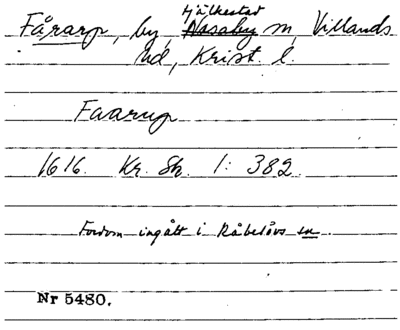 Tjälkestad
Fårarp, by, Nosaby sn, Villands
hd, Krist. l.
Faarup
1616. Kr. Sk. 1: 382.
Fordom ingått i Råbelövs sn.
Nr 5480.